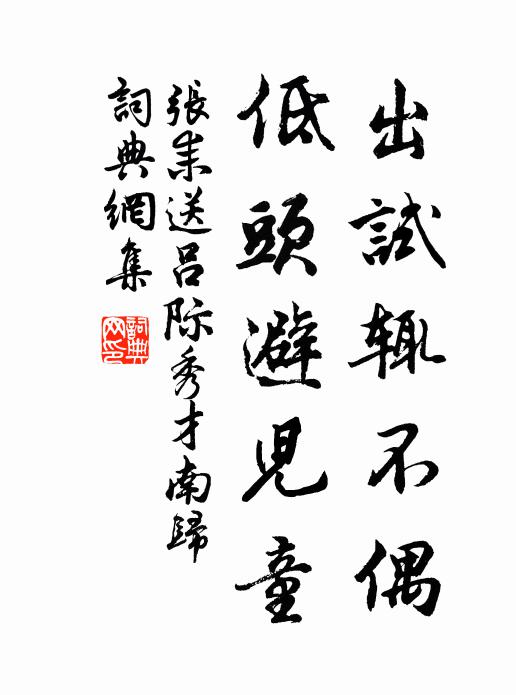 出試辄不偶
低頭避児童
張耒送呂际秀才南歸
詞典網集
詞典網印